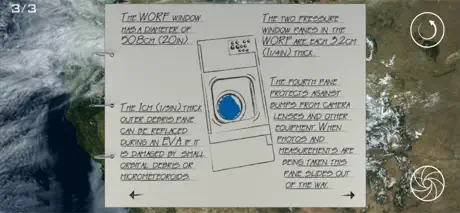 3/3
THE WORF WINDOW
HAS A DIAMETER OF
50.8CM (20IN).
THE TWO PRESSURE
WINDOW PANES IN THE
WORF ARE EACH 3.2CM
(1 1/4IN) THICK.
THE 1CM (1/3IN) THICK
OUTER DEBRIS PANE
CAN BE REPLACED
DURING AN EVA IF IT
IS DAMAGED BY SMALL
ORBITAL DEBRIS OR
MICROMETEOROIDS.
THE FOURTH PANE
PROTECTS AGAINST
BUMPS FROM CAMERA
LENSES AND OTHER
EQUIPMENT. WHEN
PHOTOS AND
MEASUREMENTS ARE
BEING TAKEN THIS
PANE SLIDES OUT
OF THE WAY.